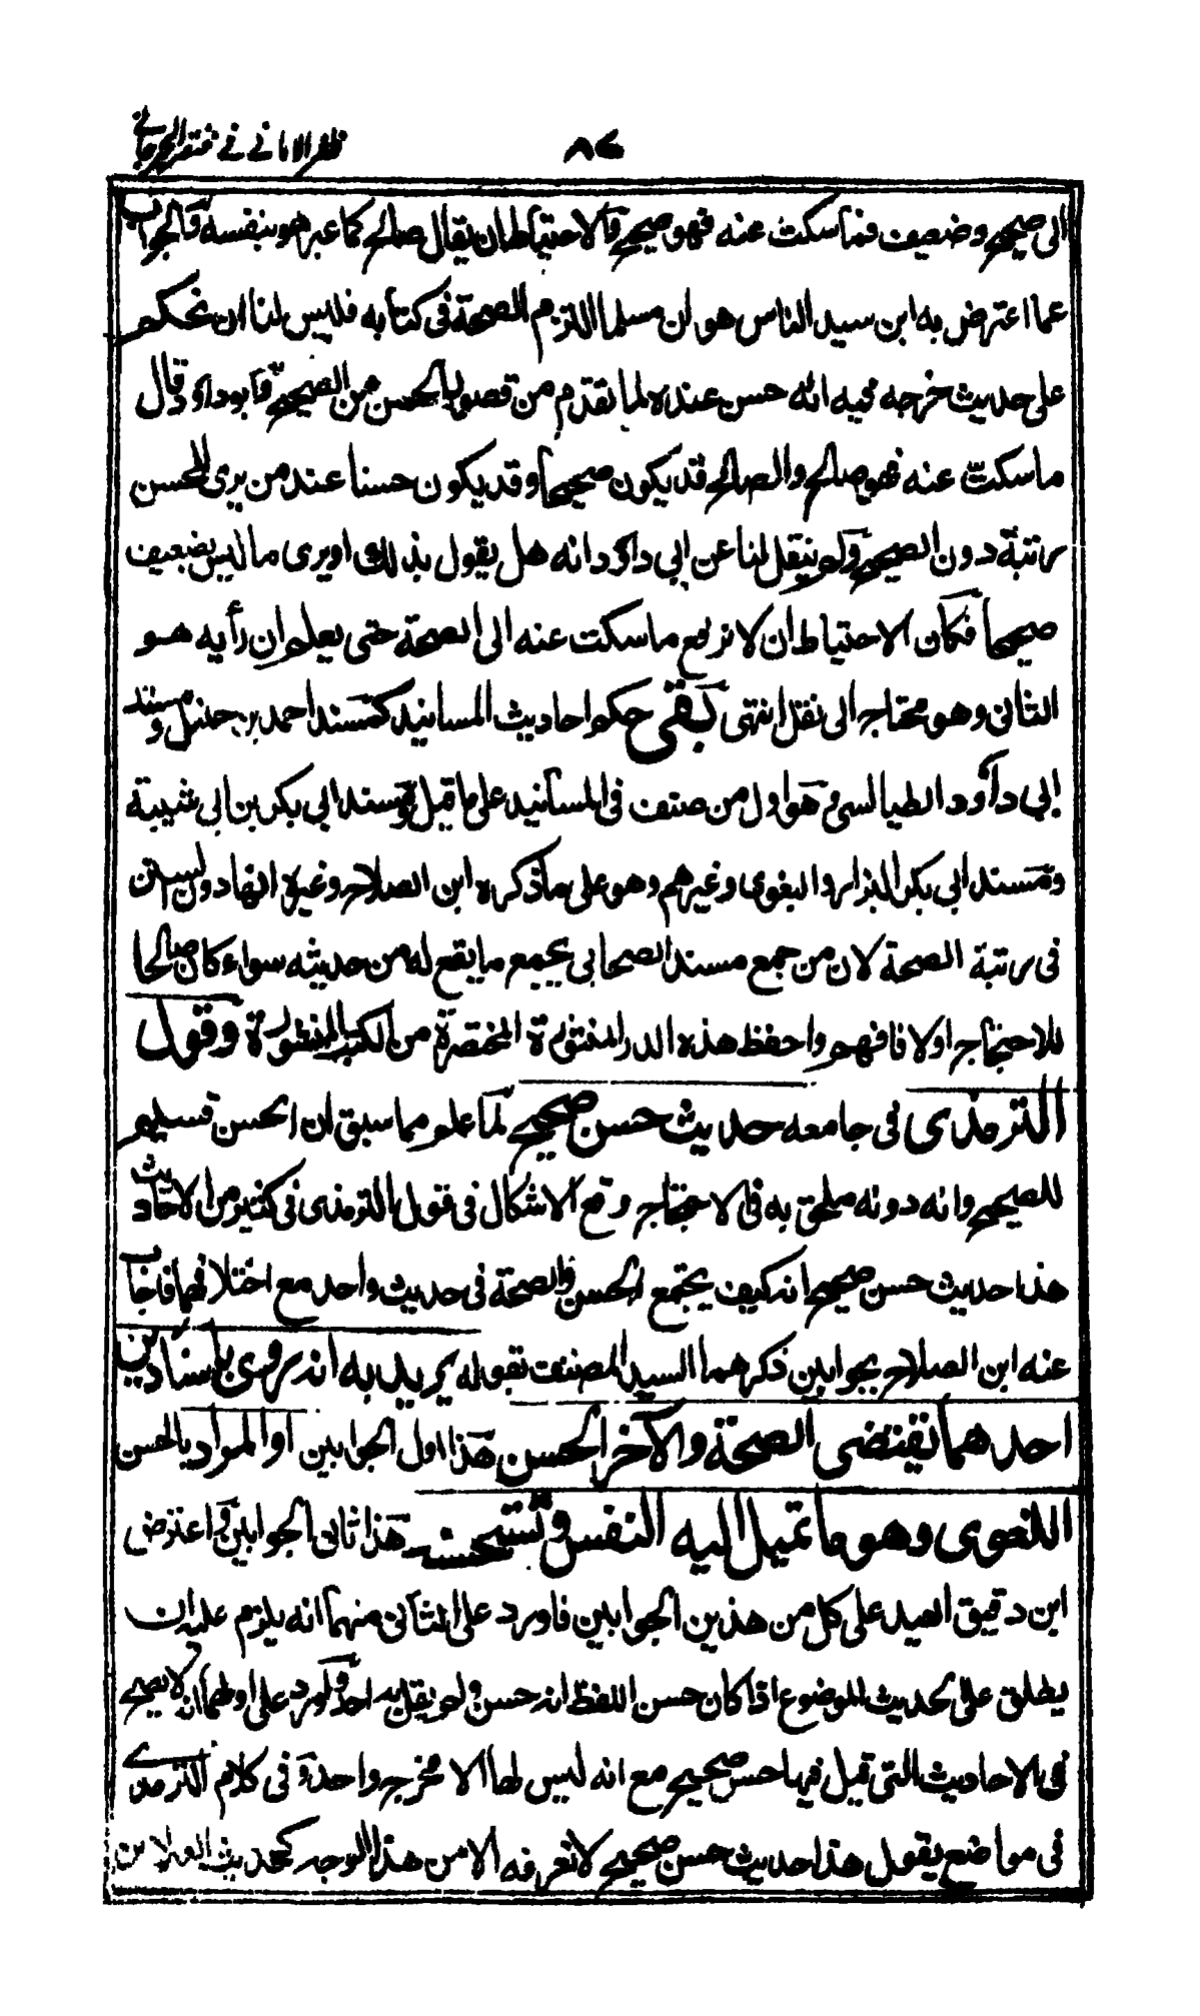 ظفر الامانی فی مختصر الجرجانی
٨٤
الی صحیح وضعیف فما سکت عنه فهو صحیح والاحتیاط ان یقال صالح کما عبر هو بنفسه والجواب
عما اعترض به ابن سید الناس هو ان مسلما التزم الصحة فی کتابه فلیس لنا ان نحکم
علی حدیث خرجه فیه انه حسن عنده لما تقدم من قصور الحسن من الصحیح وابو داؤد قال
ما سکتّ عنه فهو صالح والصالح قد یکون صحیحا وقد یکون حسنا عند من یری الحسن
رتبة دون الصحیح ولم ینقل لنا عن ابی داؤد انه هل یقول بذلک او یری ما لیس بضعیف
صحیحا فکان الاحتیاط ان لا نرفع ما سکت عنه الی الصحة حتی یعلم ان رأیه هو
الثانی وهو محتاج الی نقل انتهی بقی حکم احادیث المسانید کمسند احمد بن حنبل ومسند
ابی داؤد الطیالسی وهو اول من صنف فی المسانید علی ما قیل ومسند ابی بکر بن ابی شیبة
ومسند ابی بکر البزار والبغوی وغیرهم وهو علی ما ذکره ابن الصلاح وغیره انها دون السنن
فی رتبة الصحة لان من جمع مسند الصحابی یجمع ما یقع له من حدیثه سواء کان صالحا
للاحتجاج اولا فافهم واحفظ هذه الدرر المنثورة المختصرة من الکتب المنشورة وقول
الترمذی فی جامعه حدیث حسن صحیح لما علم مما سبق ان الحسن قسیم
للصحیح وانه دونه ملحق به فی الاحتجاج وقع الاشکال فی قول الترمذی فی کثیر من الاحادیث
هذا حدیث حسن صحیح انه کیف یجتمع الحسن والصحة فی حدیث واحد مع اختلافهما فاجاب
عنه ابن الصلاح بجوابین ذکرهما السید المصنف بقوله یرید به انه روی باسنادین
احدهما یقتضی الصحة والآخر الحسن هذا اول الجوابین او المراد بالحسن
اللغوی وهو ما تمیل الیه النفس وتستحسنه هذا ثانی الجوابین واعترض
ابن دقیق العید علی کل من هذین الجوابین فاورد علی الثانی منهما انه یلزم علیه ان
یطلق علی الحدیث الموضوع اذا کان حسن اللفظ انه حسن ولم یقل به احد واورد علی اولهما انه لا یصح
فی الاحادیث التی قیل فیها حسن صحیح مع انه لیس لها الا مخرج واحد وفی کلام الترمذی
فی مواضع یقول هذا حدیث حسن صحیح لا نعرفه الا من هذا الوجه کحدیث العلاء بن